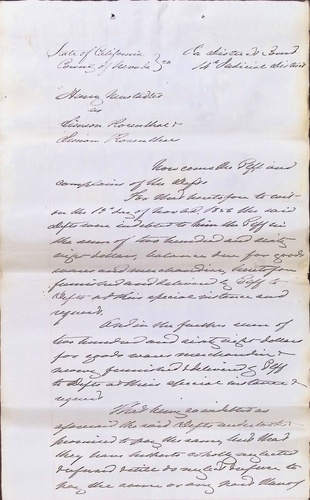 State of California In district Court
County of Nevada 14th Judicial district
Henry
vs
Simon Rosenthal &
Rosenthal
Now comes the Plff and
complains of the Defts
For that heretofore to wit
on the 1st day of 1856 the said
defts were indebted to him the Plff in
the sum of two hundred and sixty
dollars, balance due for goods
wares and merchandise, heretofore
furnished and delivered by Plff to
Defts at their special instance and
request.
And in the further sum of
two hundred and sixty dollars
for goods wares merchandise &
money furnished & delivered by Plff
to Defts at their special instance &
request
That being so indebted as
aforesaid the said Defts undertook &
promised to pay the same, but that
they have hitherto wholly neglected
& refused & still do neglect & refuse to
pay the same or any part thereof